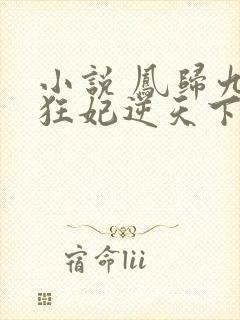 小說鳳歸九
狂妃逆天下
宿命lii